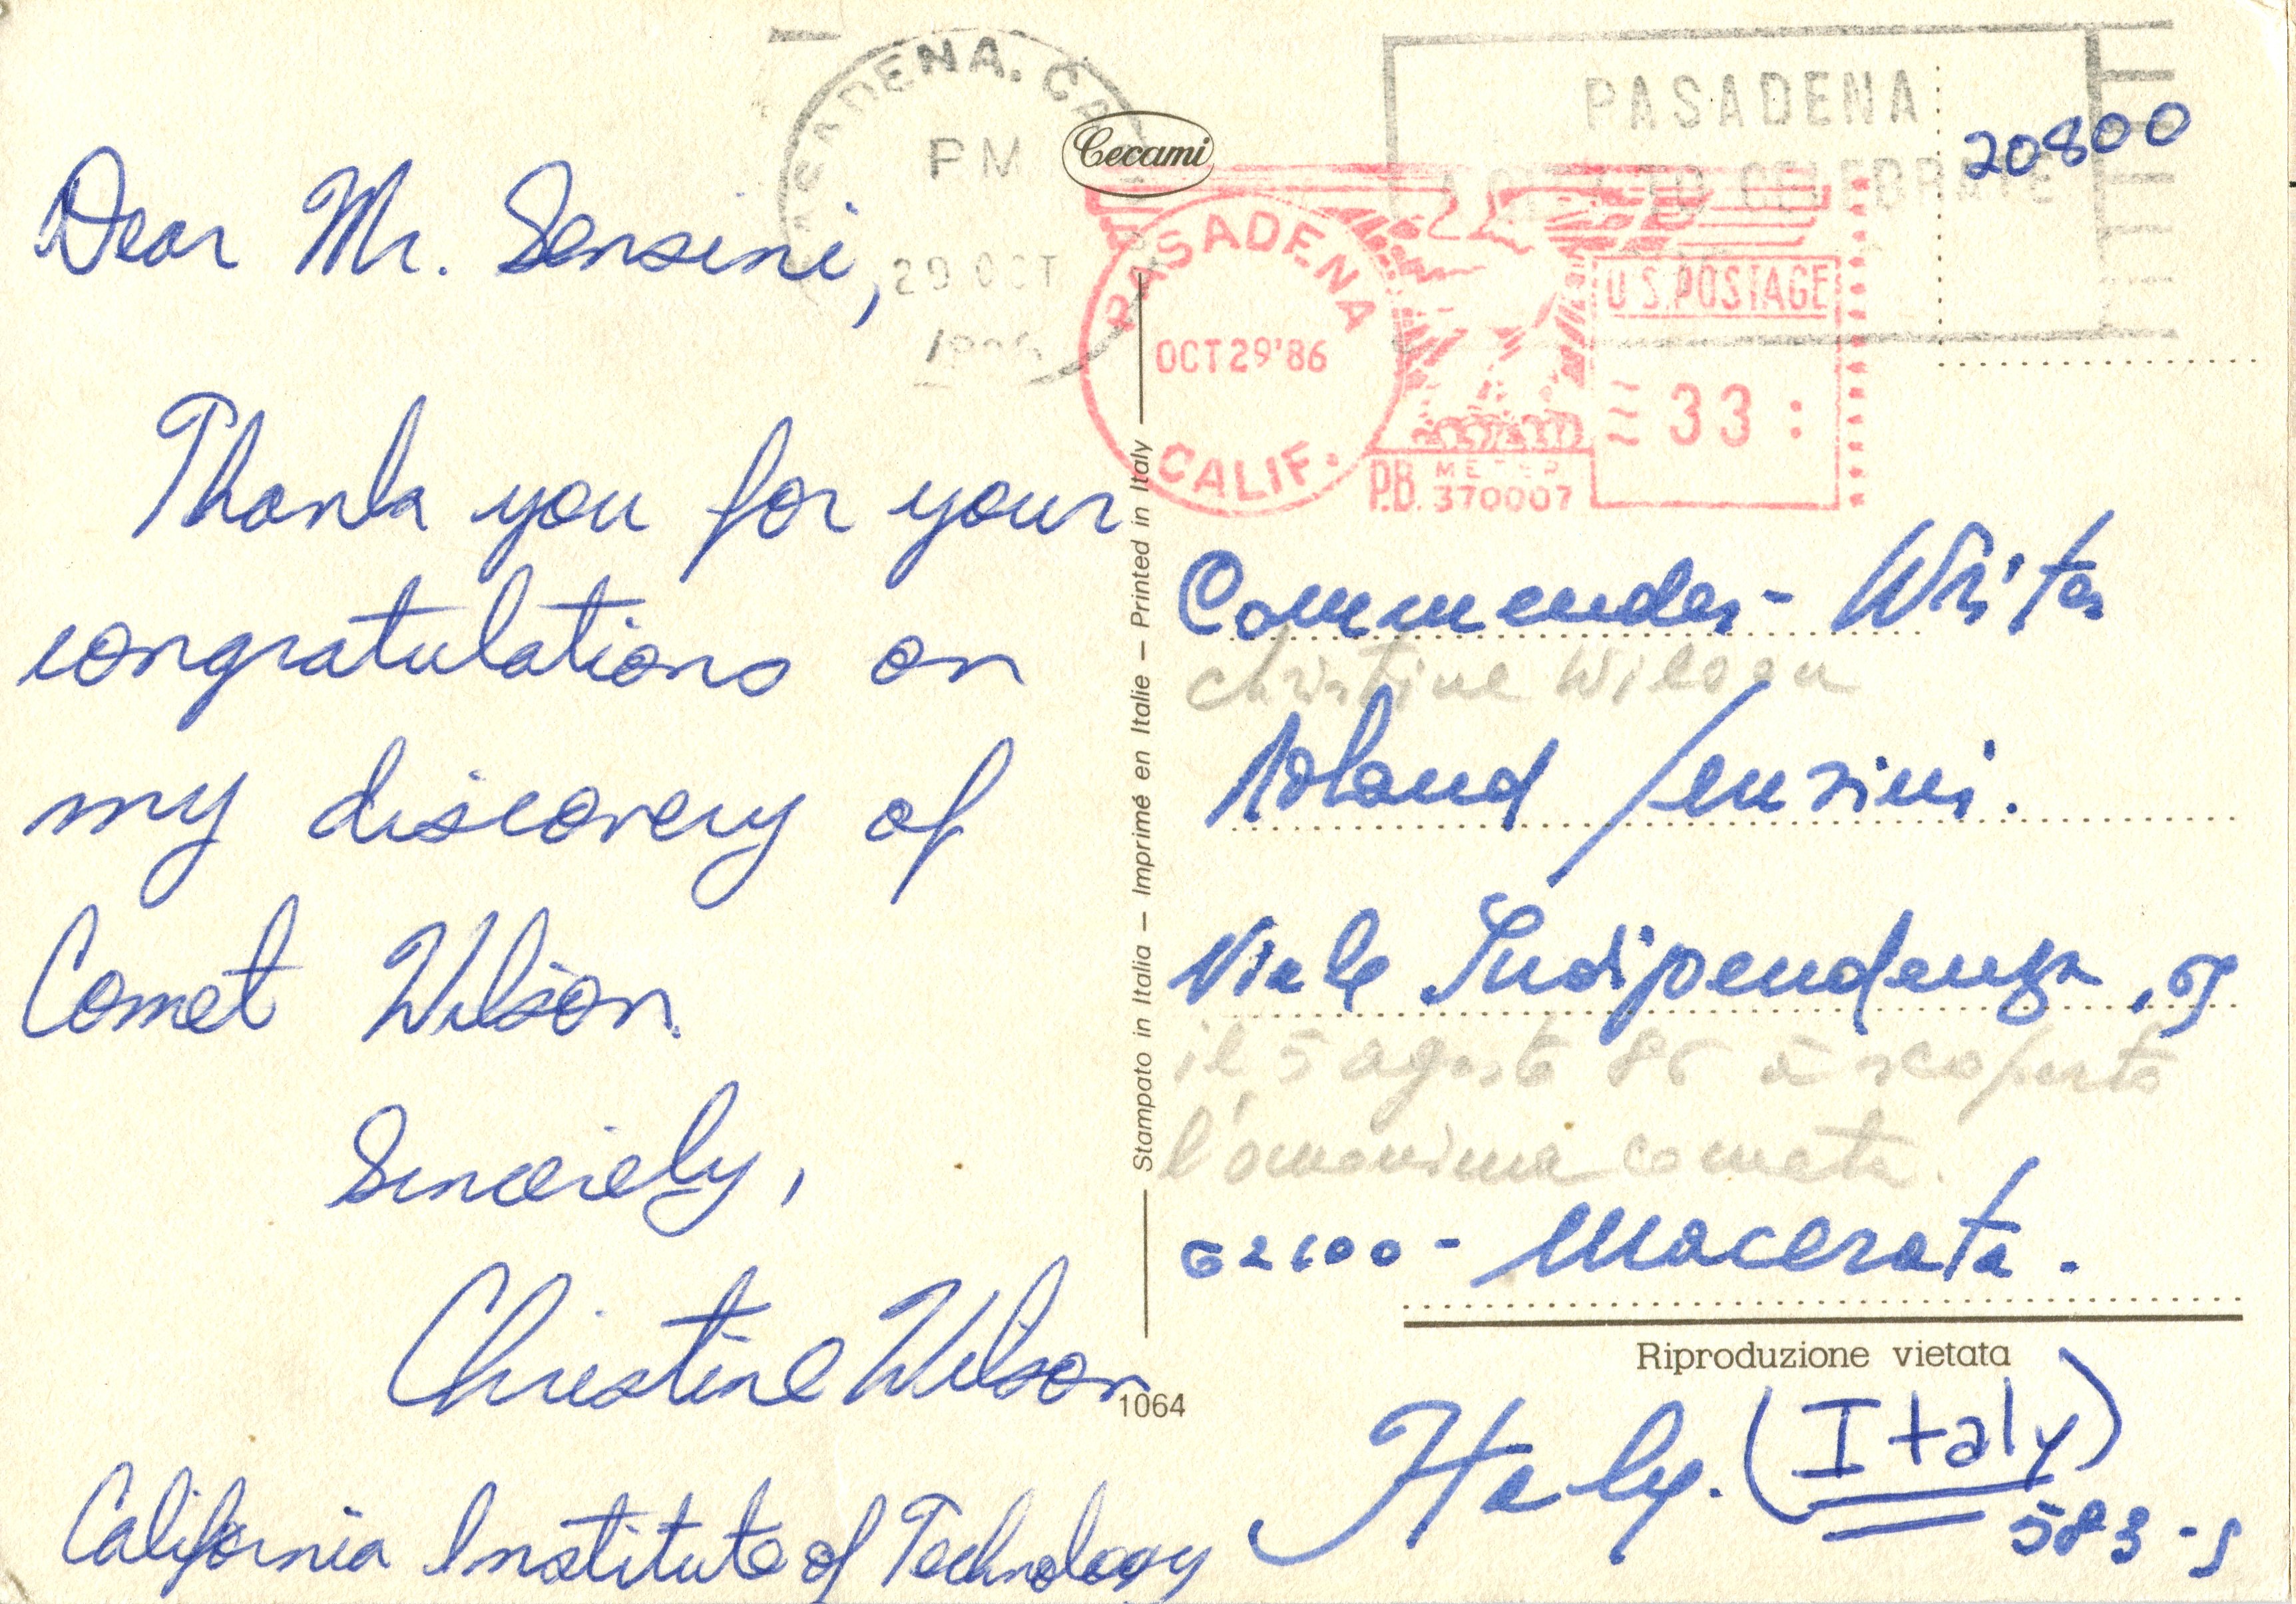 PASADENA, CA
PM
29 OCT
1986
PASADENA
TO CELEBRATE
20800
Cecami
PASADENA
OCT 29 '86
CALIF.
U.S. POSTAGE
33
P.B. METER
370007
Dear Mr. Sensini,
Thank you for your
congratulations on
my discovery of
Comet Wilson.
Sincerely,
Christine Wilson
California Institute of Technology
Stampato in Italia – Imprimé en Italie – Printed in Italy
1064
Commender - Writer
Christine Wilson
Roland Sensini.
Viale Indipendenza,
il 5 agosto 86 à scoperto
l'omonima cometa.
62100 - Macerata.
Riproduzione vietata
Italy. (Italy)
583-S